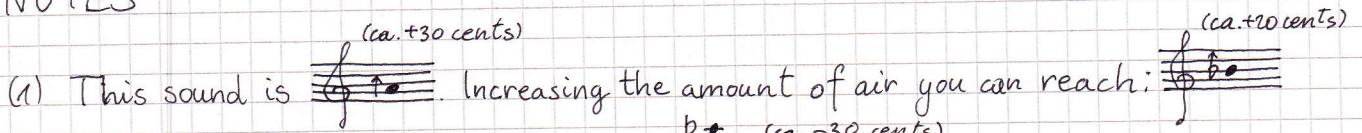 NOTES
(ca. +30 cents) (ca. +20 cents)
(1) This sound is . Increasing the amount of air you can reach:
(ca. -30 cents)